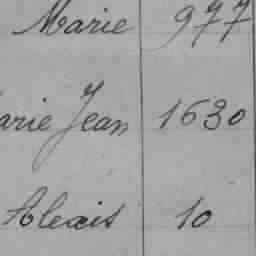 Marie 977
arie Jean 1630
Alexis 10